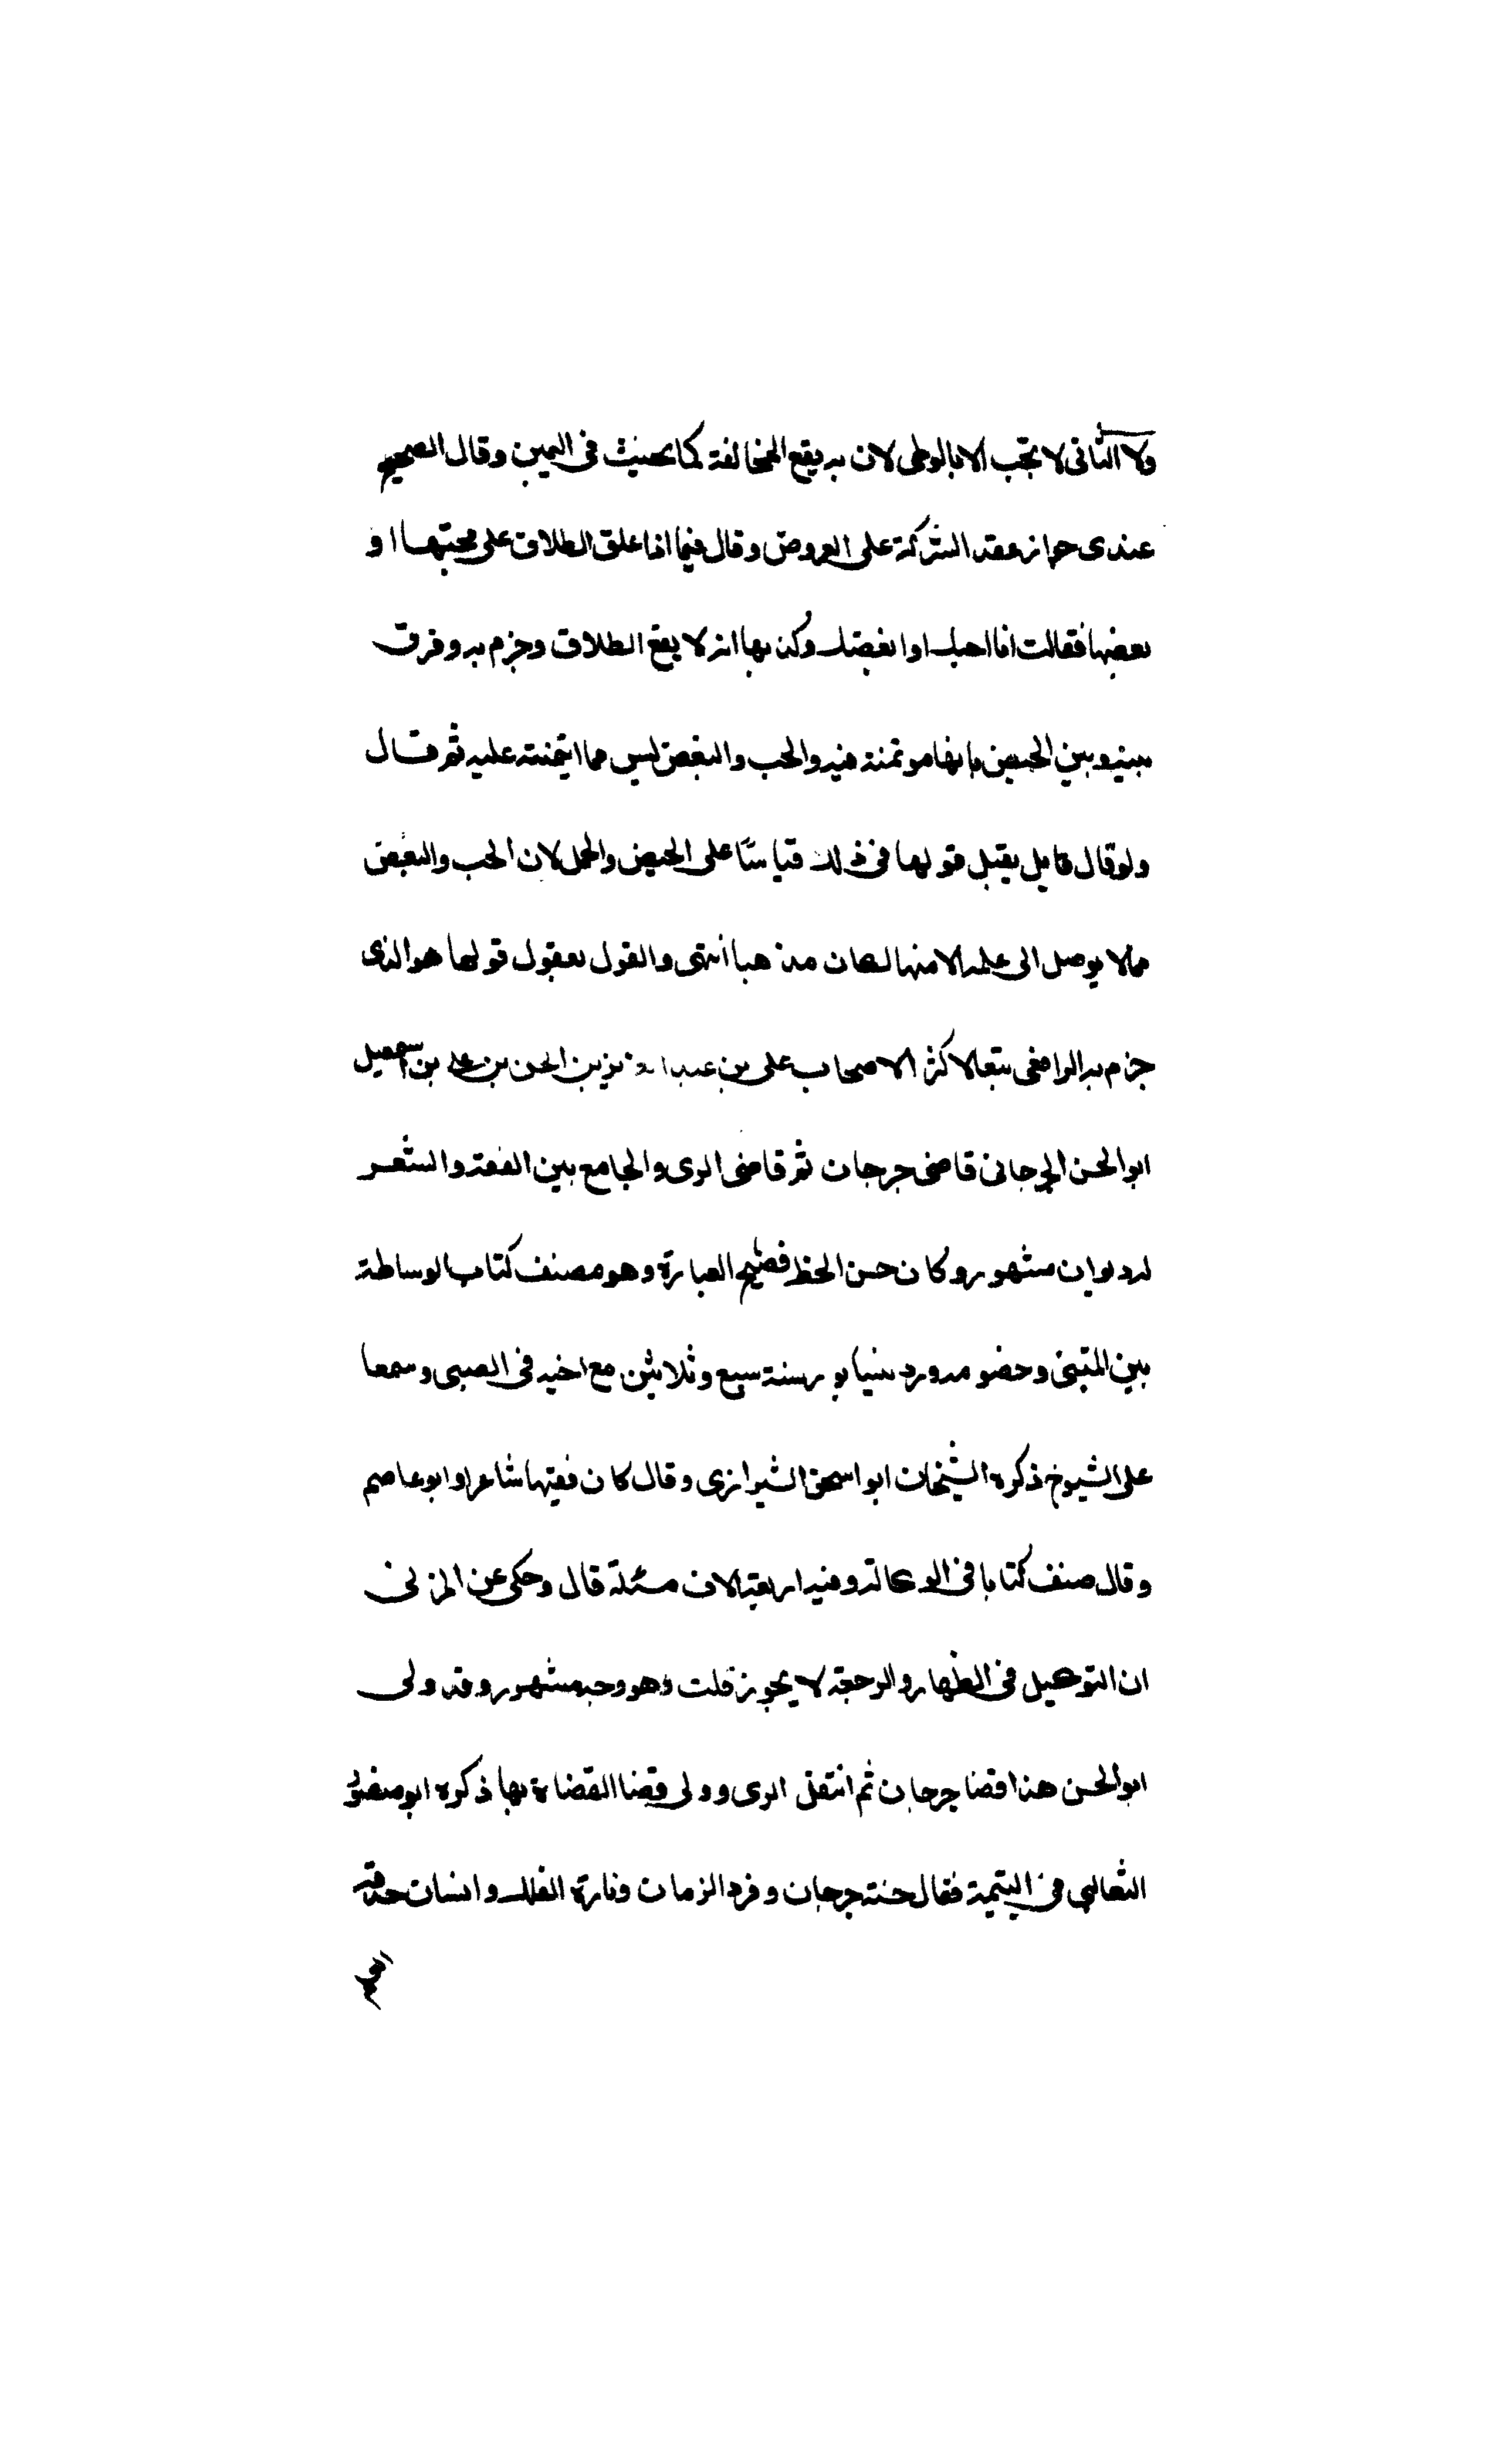 ولا الثانى لا تجب الا بالوطى لان به يقع المخالفة كما يحنث فى اليمين وقال الصحيح
عندى جواز عقد الشركة على العروض وقال فيما اذا علق الطلاق على محبتها او
بغضها فقالت انا احبك او ابغضك وكذبها انه لا يقع الطلاق وجزم به وفرق
بينه وبين الحيض بانها موتمنة فيه والحب والبغض ليس مما ايتمنته عليه ثم قال
ولو قال قايل يقبل قولها فى ذلك قياسًا على الحيض والحمل لان الحب والبغض
مما لا يوصل الى علمه الا منها لكان مذهبا انتهى والقول بقبول قولها هو الذى
جزم به الرافعى تبعا لاكثر الاصحاب على بن عبد العزيز بن الحسن بن على بن اسمعيل
ابو الحسن الجرجانى قاضى جرجان ثم قاضى الرى والجامع بين الفقه والشعر
له ديوان مشهور وكان حسن الخط فصيح العبارة وهو مصنف كتاب الوساطة
بين المتنبى وخصومه ورد نيسابور سنة سبع وثلاثين مع اخيه فى الصبى وسمعا
على الشيوخ ذكره الشيخان ابو اسحق الشيرازى وقال كان فقيها شاعرا وابو عاصم
وقال صنف كتابا فى الوكالة وفيه اربعة الاف مسئلة قال وحكى عن المزنى
ان التوكيل فى الظهار والرجعة لا يجوز قلت وهو وجه مشهور وقد ولى
ابو الحسن هذا قضا جرجان ثم انتقل الرى وولى قضا القضاة بها ذكره ابو منصور
الثعالبى فى اليتيمة فقال حسنة جرجان وفرد الزمان ونادرة الفلك وانسان حدقة